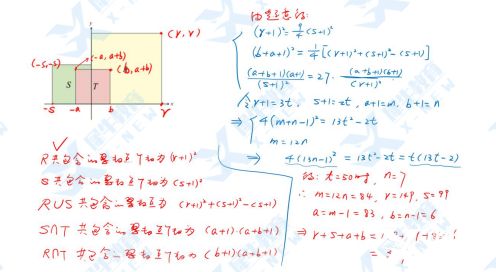 (r, r)
(-s, s)
(-a, a+b)
(b, a+b)
S
T
-s
-a
b
r
R共包含的整数点个数为 (r+1)²
S共包含的整数点个数为 (s+1)²
R∪S 共包含的整数点个数为 (r+1)²+(s+1)²-(s+1)
S∩T 共包含的整数点个数为 (a+1)(a+b+1)
R∩T 共包含的整数点个数为 (b+1)(a+b+1)
由题意得:
(r+1)² = 9/4 (s+1)²
(b+a+1)² = 1/4 [(r+1)²+(s+1)²-(s+1)]
(a+b+1)(a+1)/(s+1)² = 27 · (a+b+1)(b+1)/(r+1)²
r+1=3t, s+1=2t, a+1=m, b+1=n
⇒ 4(m+n-1)² = 13t²-2t
m=12n
⇒ 4(13n-1)² = 13t²-2t = t(13t-2)
t=50时, n=7
∴ m=12n=84, r=149, s=99
a=m-1=83, b=n-1=6
⇒ r+s+a+b =